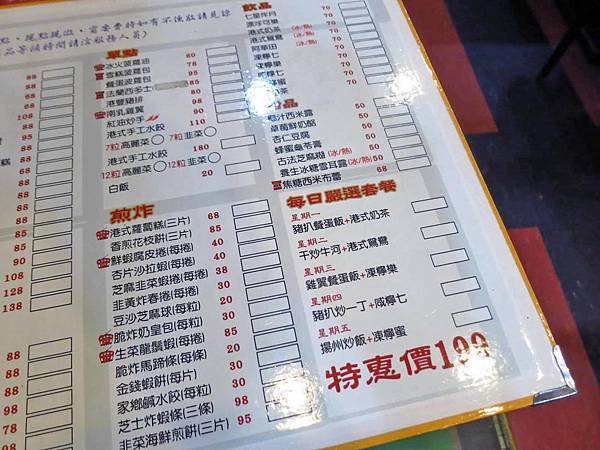 點、現點現做，需要費時如有不便敬請見諒
品等候時間請洽服務人員)
88
88
88
88
108
98
88
88
88
88
90
108
128
138
88
88
88
98
78
98
單點
冰火菠蘿油 60
雪糕菠蘿包 78
餐蛋菠蘿包 85
法蘭西多士 85
港豐豬排 80
南乳雞翼 90
紅油炒手 110
港式手工水餃 95
7粒高麗菜○ 7粒韭菜○
港式手工水餃 180
12粒高麗菜○ 12粒韭菜○
白飯 20
煎炸
港式蘿蔔糕(三片) 68
香煎花枝餅(三片) 85
鮮蝦腐皮捲(每捲) 40
杏片沙拉蝦(每捲) 38
芝麻韭菜蝦(每捲) 40
韭黃炸春捲(每捲) 30
豆沙芝麻球(每粒) 20
脆炸奶皇包(每粒) 35
生菜龍鬚蝦(每捲) 85
脆炸馬蹄條(每條) 20
金錢蝦餅(每片) 30
家鄉鹹水餃(每粒) 30
芝士炸蝦條(三條) 98
韭菜海鮮煎餅(三片) 95
飲品
七星伴月 70
漂浮可樂 70
港式奶茶(冰/熱) 70
港式鴛鴦(冰/熱) 70
阿華田(冰/熱) 70
凍檸七 70
凍檸樂 70
凍檸蜜 70
品
椰汁西米露 50
草莓鮮奶酪 50
杏仁豆腐 50
蜂蜜龜苓膏 50
古法芝麻糊(冰/熱) 50
養生冰糖雪耳露(冰/熱) 50
焦糖西米布蕾 68
每日嚴選套餐
星期一
豬扒餐蛋飯+港式奶茶
星期二
干炒牛河+港式鴛鴦
星期三
雞翼餐蛋飯+凍檸樂
星期四
豬扒炒一丁+咸檸七
星期五
揚州炒飯+凍檸蜜
特惠價199